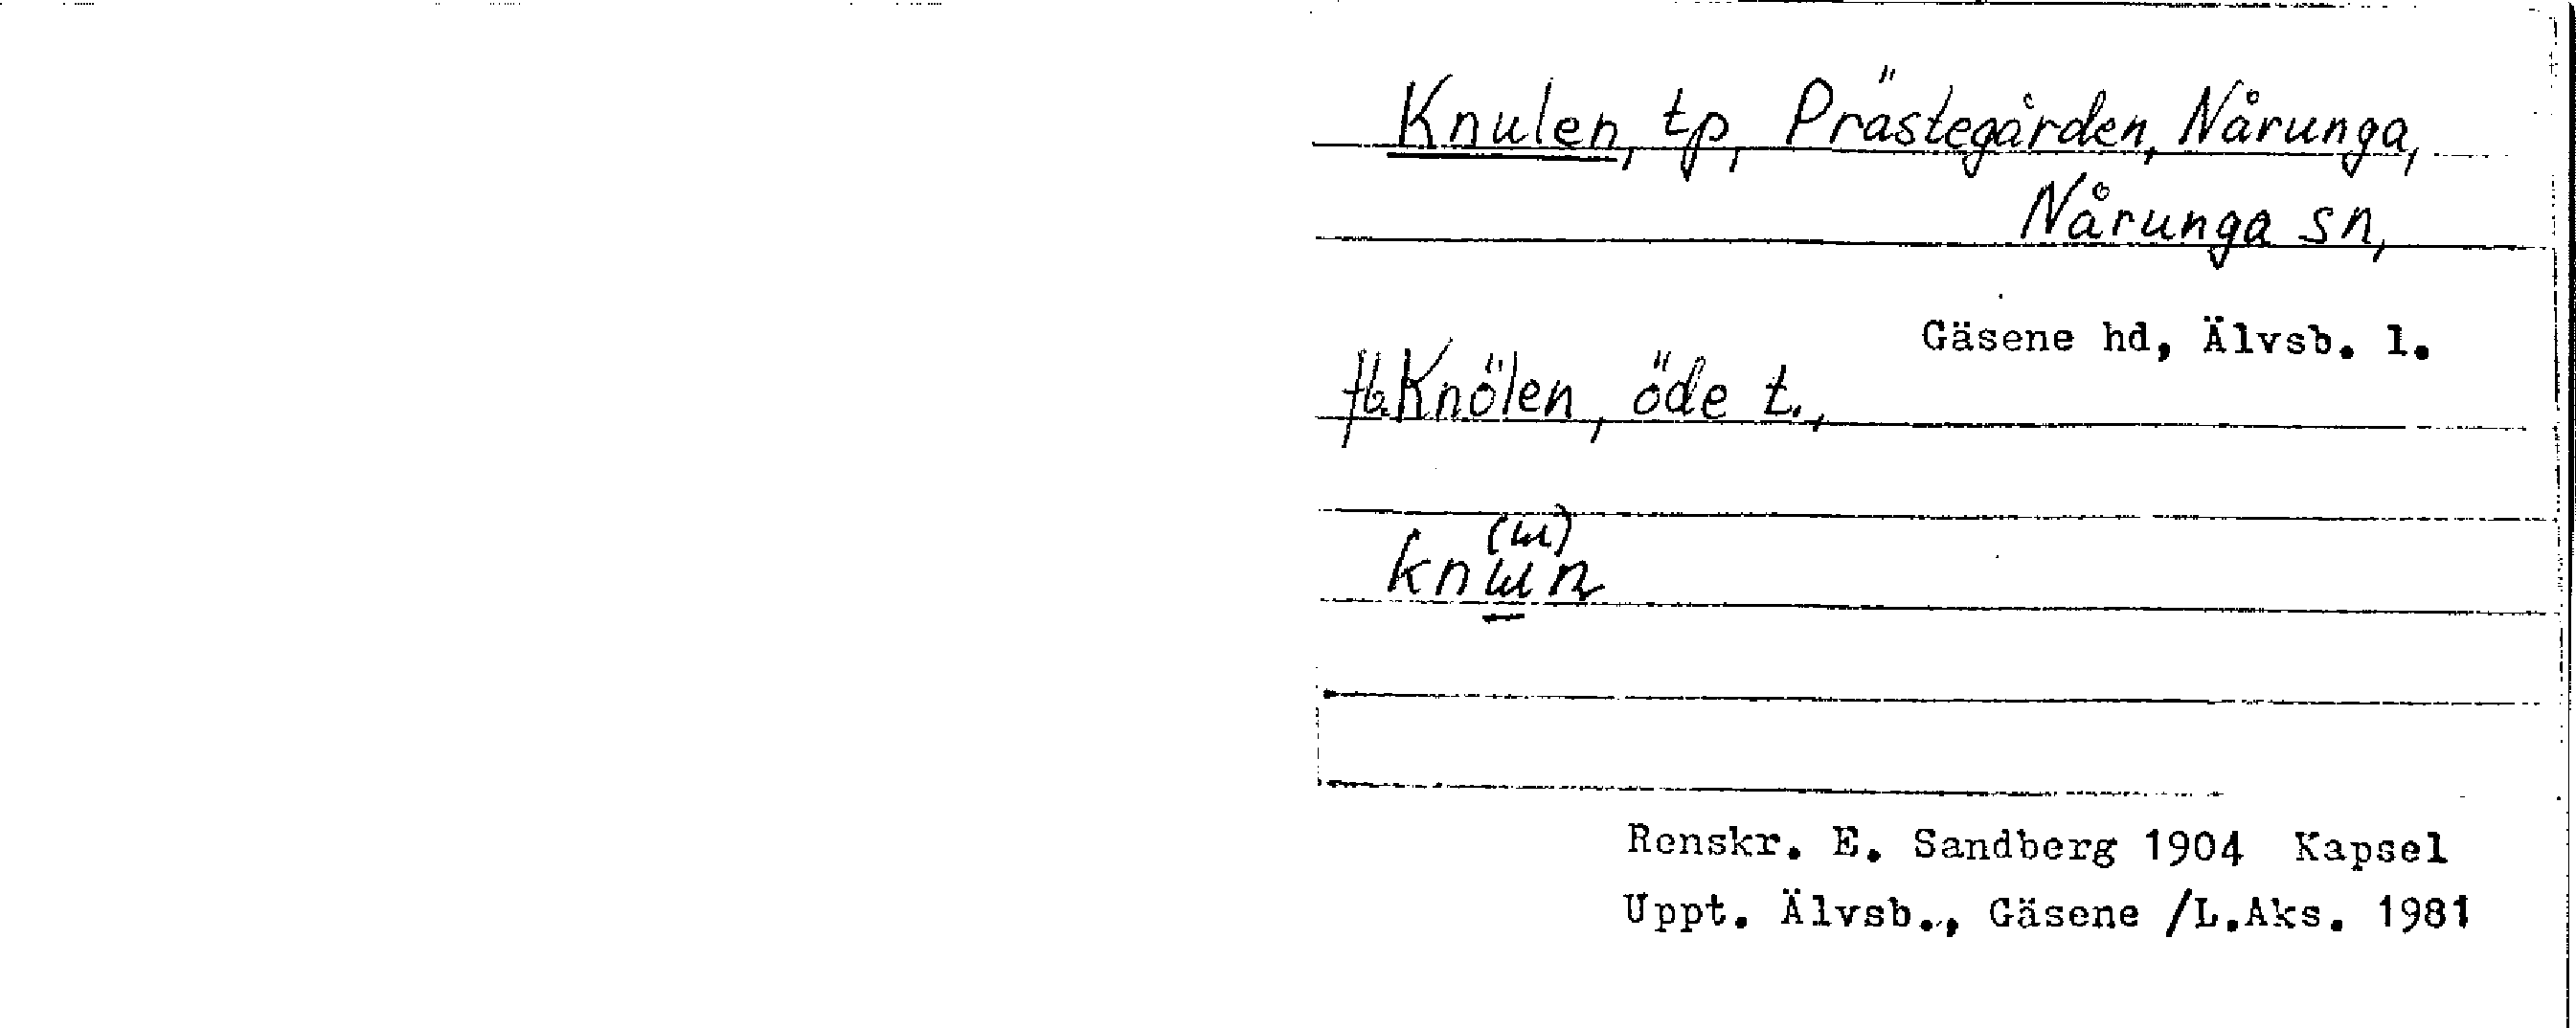 Knulen, tp, Prästegården, Nårunga,
Nårunga sn,
Gäsene hd, Älvsb. l.
Knölen, öde t.,
Renskr. E. Sandberg 1904 Kapsel
Uppt. Älvsb., Gäsene /L.Aks. 1981